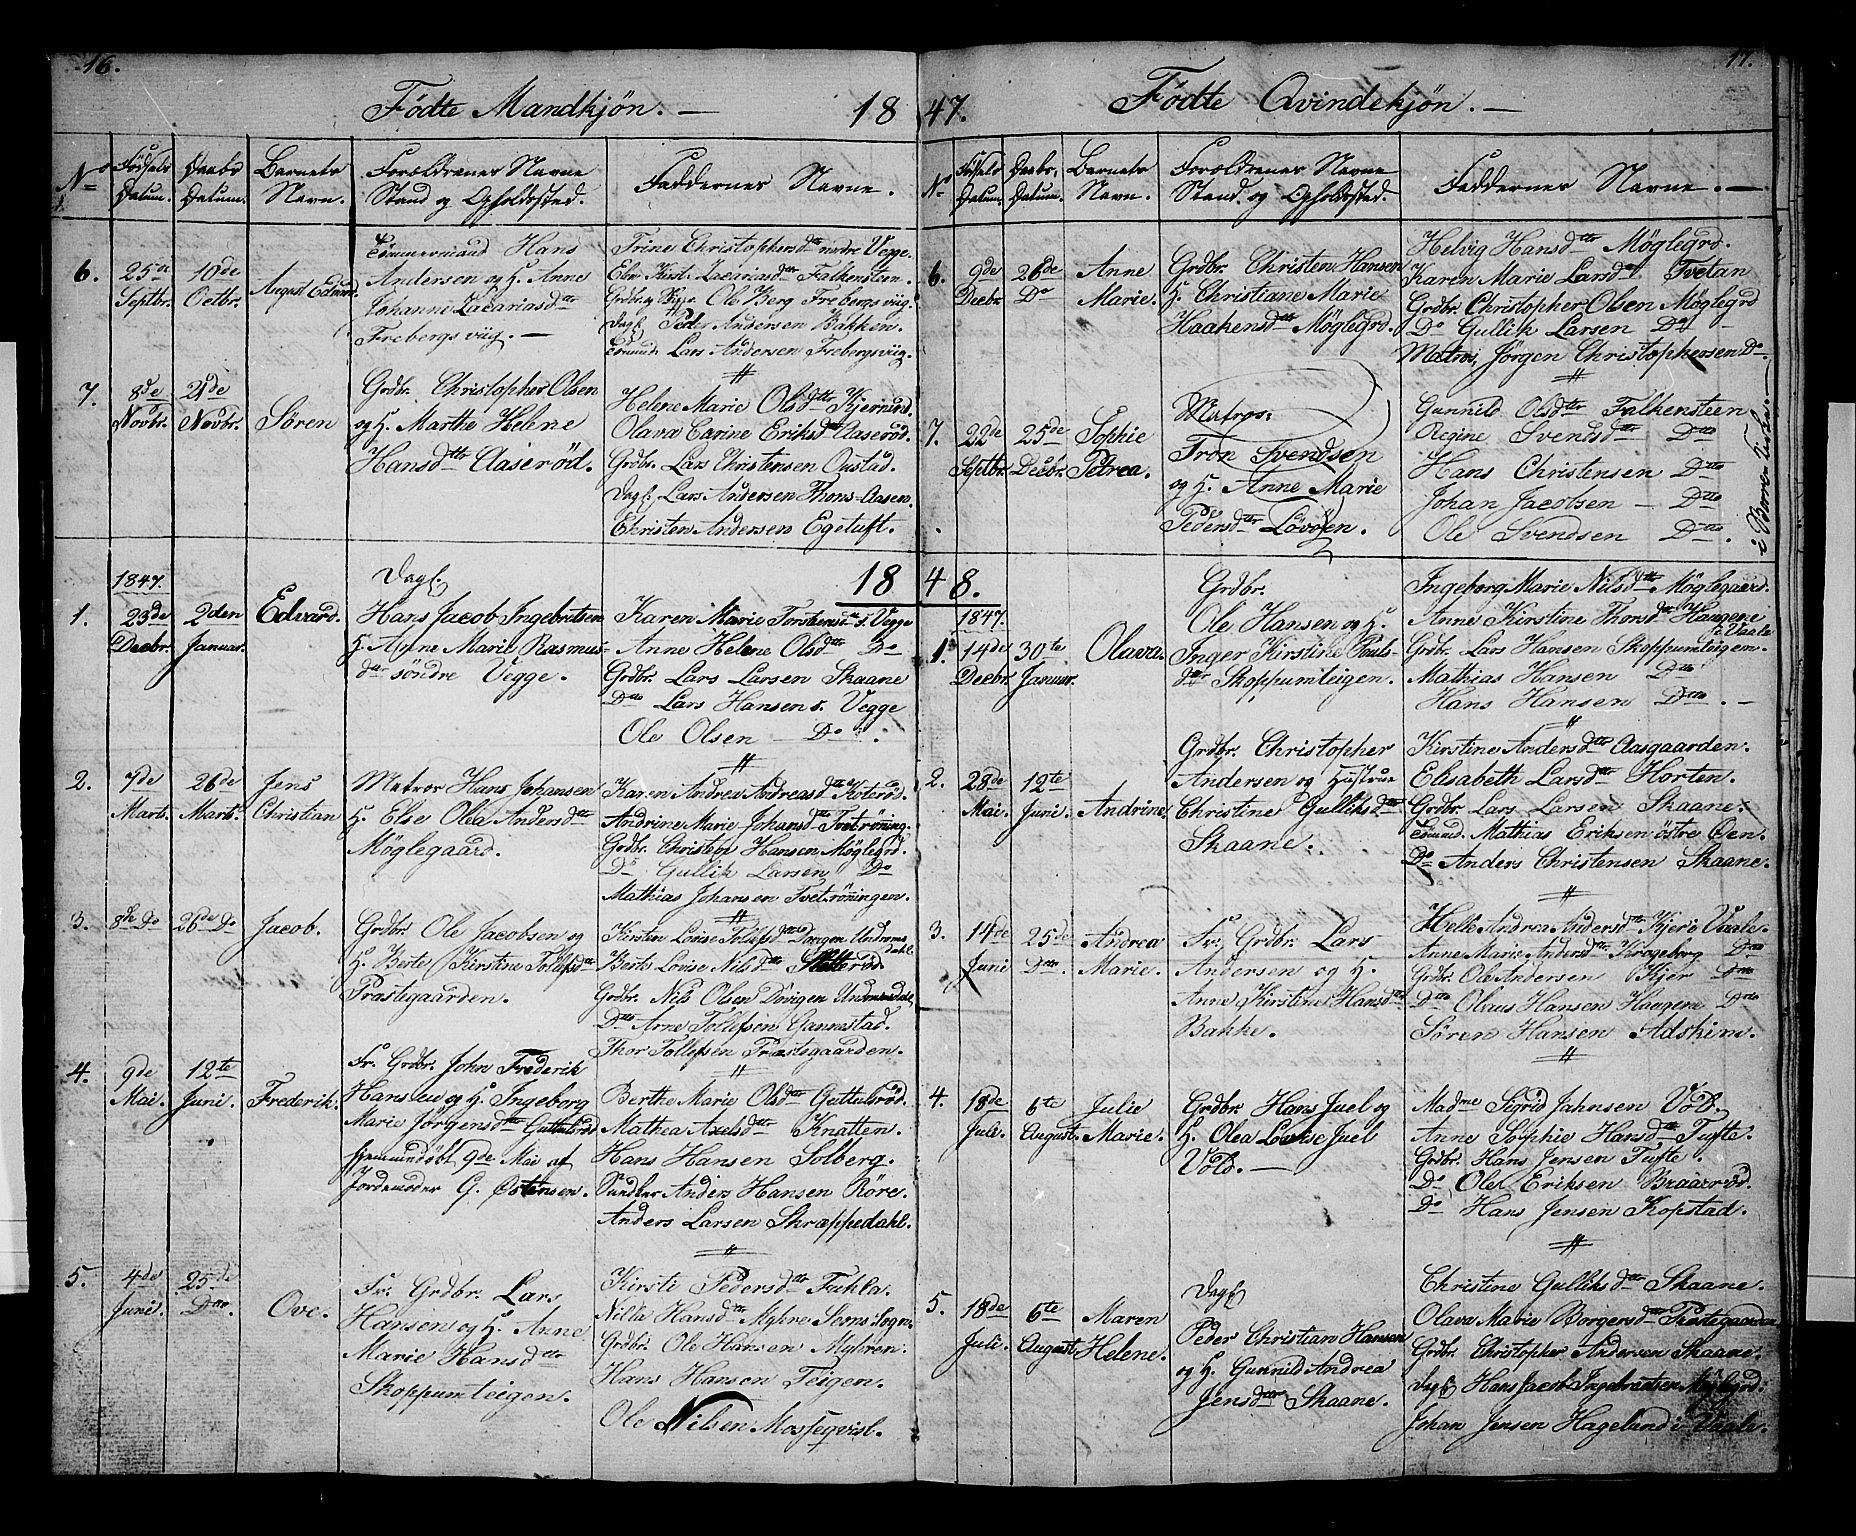 16.
Fødte Mandkjøn. — 18
No
1.
Fødsels
Datum.
Daabs
Datum.
Barnets
Navn.
Forældrenes Navne
Stand og Opholdssted.
Faddernes Navne.
6.
25de
Septbr.
10de
Octbr.
August Edvard
Tømmermand Hans
Andersen og H. Anne
Johanne Zacariasdtr
Frebergsviig. —
Trine Christophersdtr nedre Vegge.
Elen Kirst. Zacariasdtr Falkensteen.
Grdbr. og Ole Berg Frebergsviig.
Dagl. Peder Andersen Bakken.
Tømmd. Lars Andersen Frebergsviig.
7.
8de
Novbr.
21de
Novbr.
Søren
Grdbr. Christopher Olsen
og H. Marthe Helene
Hansdtr Aaserød.
Helene Marie Olsdtr Kjerund.
Olava Carine Eriksdtr Aaserød.
Grdbr. Lars Christensen Oustad.
Dagl. Lars Andersen Thons-Aasen
Christen Andersen Egetuft.
18
1847.
1.
23de
Decbr.
2den
Januar.
Edvard.
Dagl.
Hans Jacob Ingebretsen
H. Anne Marie Rasmus-
dtr søndre Vegge.
Karen Marie Torstensdtr s. Vegge
Anne Helene Olsdtr Do
Grdbr. Lars Larsen Skaane
Dto Lars Hansen s. Vegge
Ole Olsen — Do.
2.
7de
Marts.
26de
Marts.
Jens
Christian
Matros Hans Johansen
H. Else Olea Andersdtr
Møglegaard.
Karen Andrea Andreasdtr Koterød.
Andrine Marie Johansdtr Tvetrøning.
Grdbr. Christen Hansen Møglegrd.
Do Gullik Larsen Do
Mathias Johansen Tvetrøningen.
3.
8de Do
26de Do
Jacob.
Grdbr. Ole Jacobsen og
H. Berte Kirstine Tollefsdtr
Præstegaarden.
Kirsten Lovise Tollefsdtr Døvigen Undrums
dahl.
Berte Lovise Nilsdtr Slotterød.
Grdbr. Nils Olsen Døvigen Undrumsdal.
Dto Arne Tollefsen Gannestad.
Thor Tollefsen Præstegaarden.
4.
9de
Mai.
12te
Juni.
Frederik.
Fr. Grdbr. John Frederik
Hansen og H. Ingeborg
Marie Jørgensdtr Guttubrød
hjemmedøbt 9de Mai af
Jordemoder G. Østensen.
Berthe Marie Olsdtr Guttubrød.
Mathea Axelsdtr Knatten.
Hans Hansen Solberg.
Snedker Anders Hansen Røre.
Anders Larsen Skrappedahl.
5.
4de
Juni.
25de
Dto.
Ove.
Fr. Grdbr. Lars
Hansen og H. Anne
Marie Hansdtr
Skoppumteigen.
Kirsti Pedersdtr Fuhla.
Nilla Hansdtr Myhre Sems Sogn.
Grdbr. Ole Hansen Myhren.
Hans Hansen Teigen.
Ole Nilsen Mosseqvist.
17.
47. Fødte Qvindekjøn. —
No
Fødsels
Datum.
Daabs
Datum.
Barnets
Navn.
Forældrenes Navne
Stand og Opholdssted.
Faddernes Navne. —
6.
9de
Decbr.
26de
Do
Anne
Marie.
Grdbr. Christen Hansen
H. Christiane Marie
Haakensdtr Møglegrd.
Helvig Hansdtr Møglegrd.
Karen Marie Larsdtr Tvetan
Grdbr. Christopher Olsen Møglegrd
Do Gullik Larsen Do —
Matros Jørgen Christophersen Do
7.
22de
Septbr.
25de
Decbr.
Sophie
Petrea.
Matros.
Tron Svendsen
og H. Anne Marie
Pedersdtr Løvøen.
Gunnild Olsdtr Falkensteen
Regine Svendsdtr Dto
Hans Christensen Dto
Johan Jacobsen — Dto
Ole Svendsen Dto.
i Borre Kirke.
48.
1847.
1.
14de
Decbr.
30te
Januar.
Olava.
Grdbr.
Ole Hansen og H.
Inger Kirstine Pouls-
dtr Skoppumteigen.
Ingeborg Marie Nilsdtr Møglegaard.
Anne Kirstine Thorsdtr Haugene
i Vaale
Grdbr. Lars Hansen Skoppumteigen.
Mathias Hansen Dto
Hans Hansen Dto. —
2.
28de
Mai.
12te
Juni.
Andrine.
Grdbr. Christopher
Andersen og Hustrue
Christine Gulliksdtr
Skaane.
Kirstine Andersdtr Aasgaarden.
Elisabeth Larsdtr Horten.
Grdbr. Lars Larsen Skaane.
Tømmd. Mathias Eriksen østre Øen.
Do Anders Christensen Skaane.
3.
14de
Juni
25de
Dto.
Andrea
Marie.
Fr. Grdbr. Lars
Andersen og H.
Anne Kirstine Hansdtr
Bakke.
Helle Andrea Andersdtr Kjer i Vaale.
Anne Marie Andersdtr Krogeborg Do
Grdbr. Ole Andersen Kjer Dto
Dto Olaus Hansen Haugene Dto
Søren Hansen Adskim.
4.
18de
Juli.
6te
August.
Julie
Marie.
Grdbr. Hans Juel og
H. Olea Lovise Juel
Vold. —
Madme Sigrid Jahnsen Vold.
Anne Sophie Hansdtr Tufte.
Grdbr. Hans Jensen Tufte.
Do Ole Eriksen Braarød.
Do Hans Jensen Kopstad.
5.
18de
Juli.
6te
August.
Maren
Helene.
Dagl.
Peder Christian Hansen
og H. Gunnild Andrea
Jensdtr Skaane.
Christine Gulliksdtr Skaane.
Olava Marie Borgersdtr Præstegaarden
Grdbr. Christopher Andersen Skaane.
Dagl. Hans Jacob Ingebretsen Møglegrd.
Johan Jensen Hageland i Vaale.